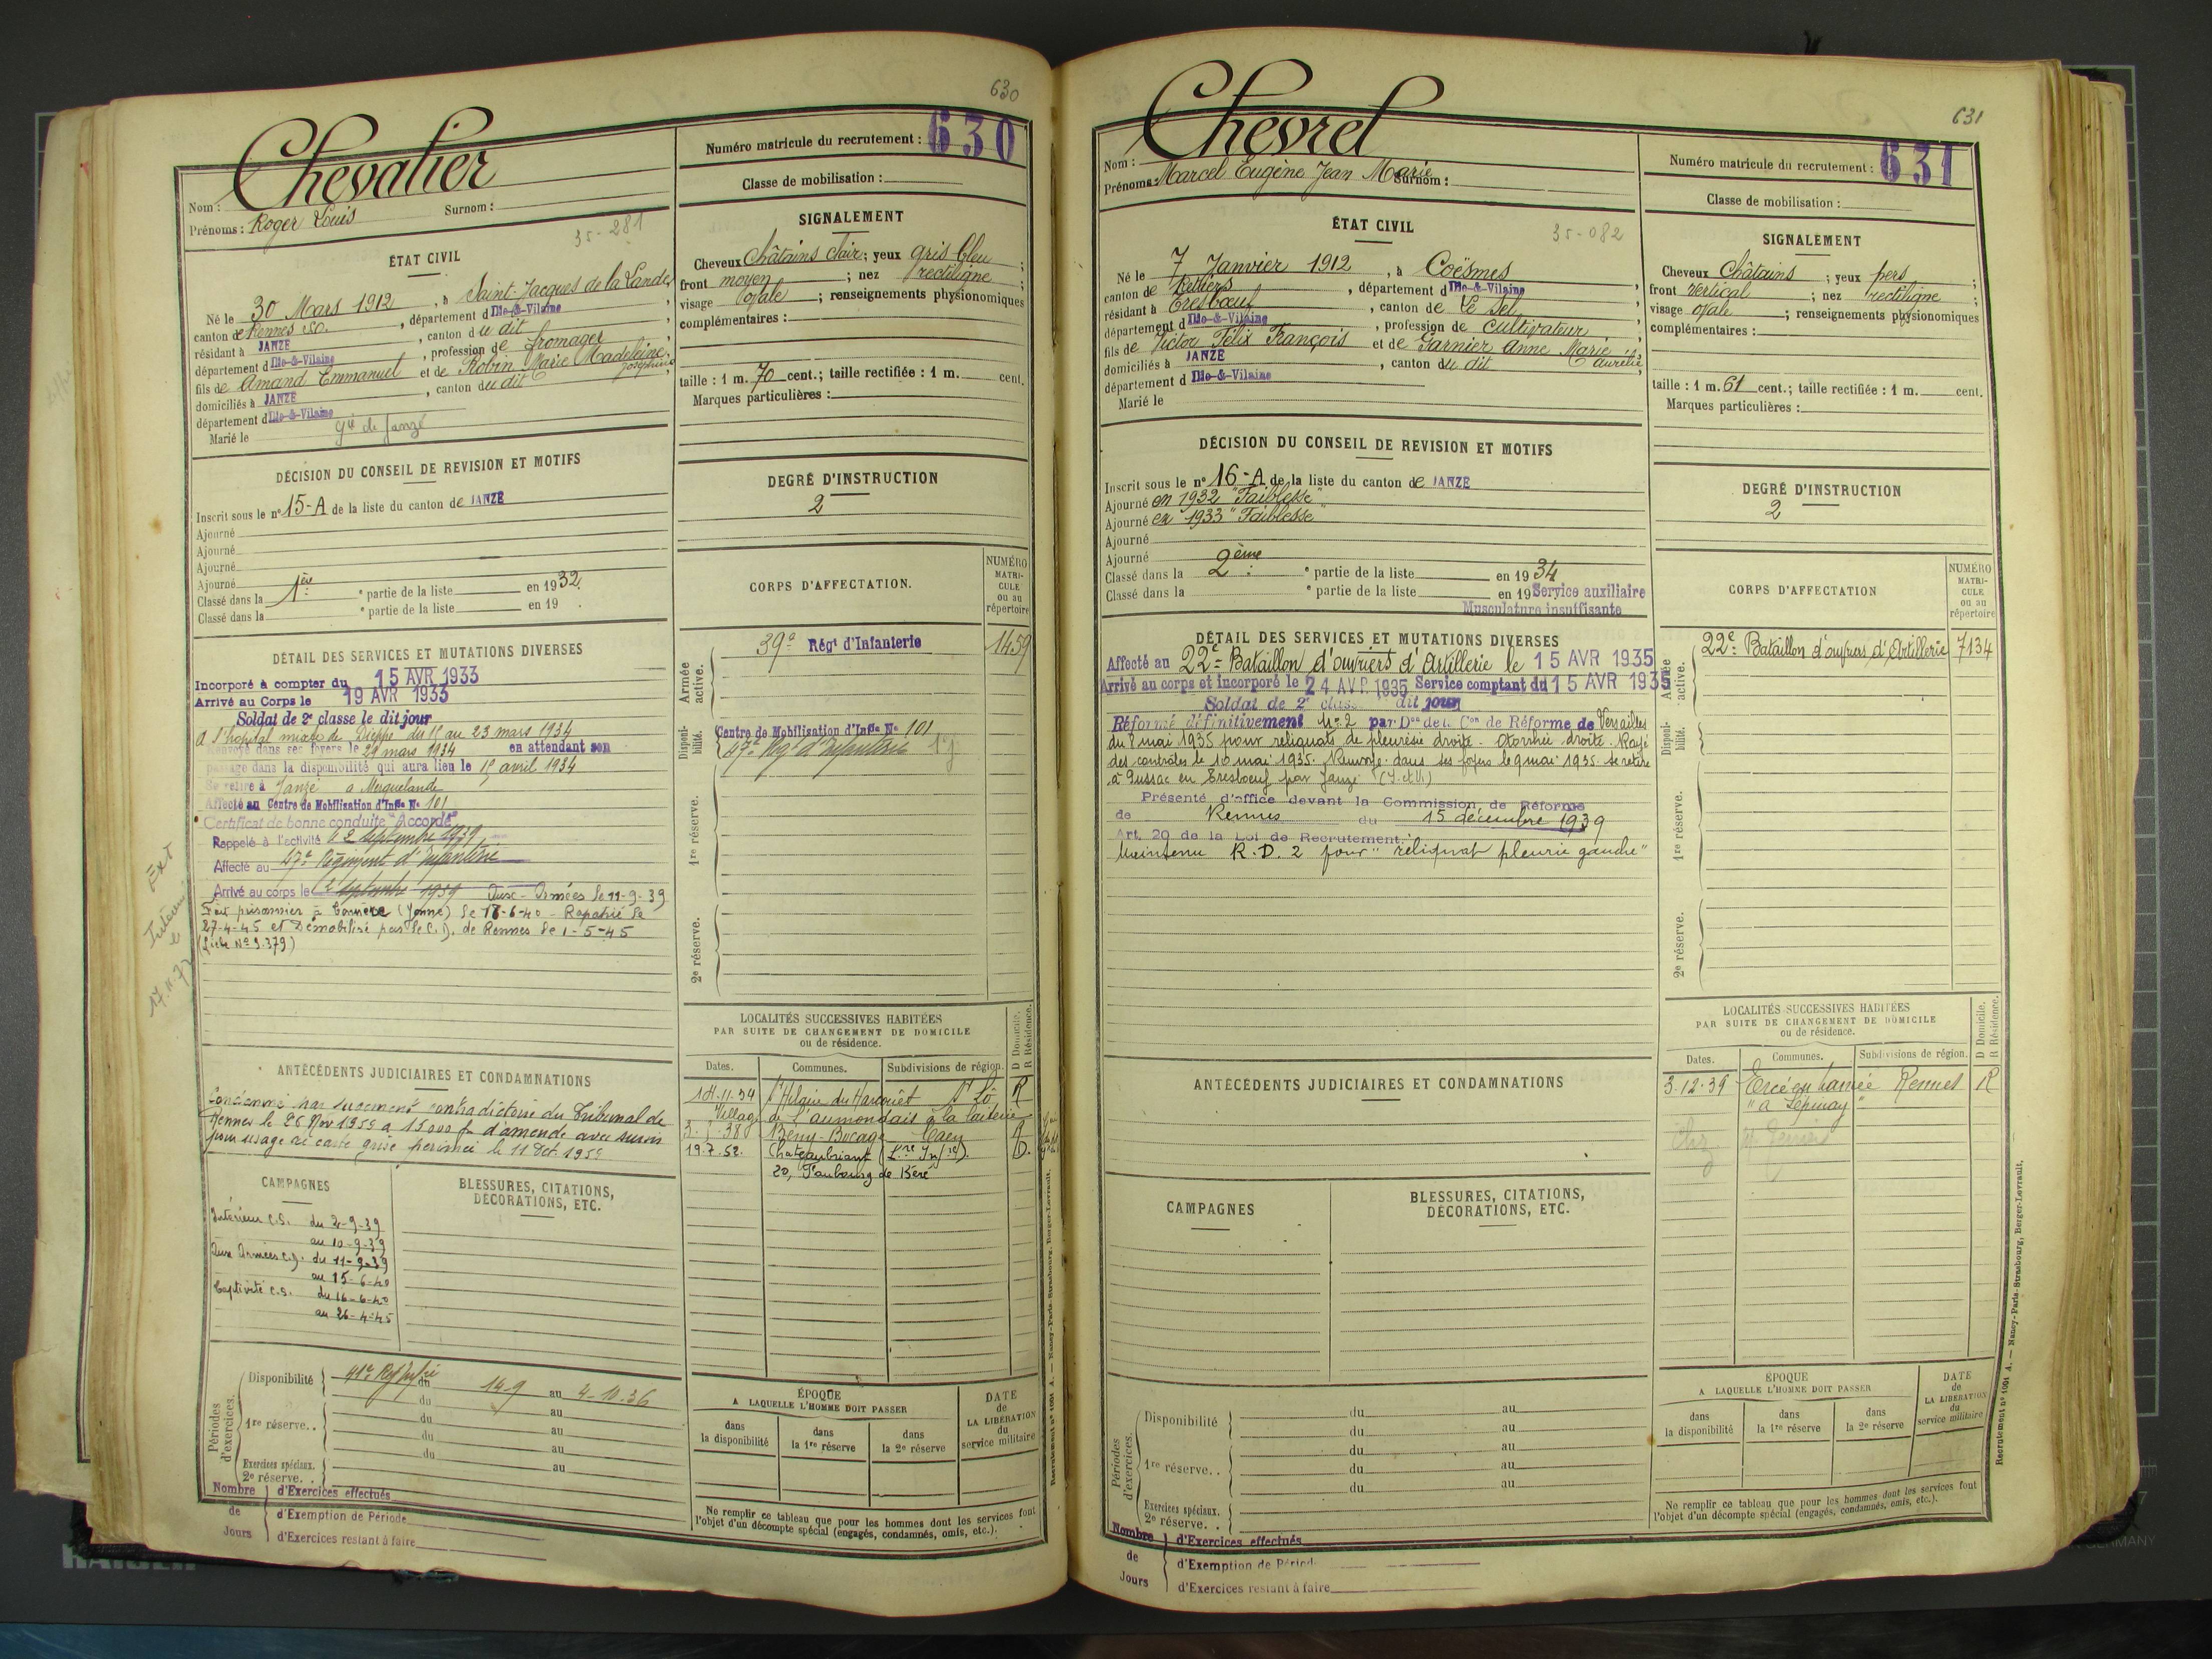 630
Chevalier
Nom :
Prénoms : Roger Louis Surnom :
Numéro matricule du recrutement : 630
Classe de mobilisation :
35-281
ÉTAT CIVIL
Né le 30 Mars 1912, à Saint-Jacques de la Lande,
canton de Rennes S.O., département d Ille-&-Vilaine,
résidant à JANZÉ, canton du dit,
département d Ille-&-Vilaine, profession de fromager,
fils de Amand Emmanuel et de Robin Marie Madeleine
Joséphine
domiciliés à JANZÉ, canton du dit,
département d Ille-&-Vilaine
Marié le
gie de Janzé
SIGNALEMENT
Cheveux châtains clair ; yeux gris bleu ;
front moyen ; nez rectiligne ;
visage ovale ; renseignements physionomiques
complémentaires :
taille : 1 m. 70 cent.; taille rectifiée : 1 m. cent.
Marques particulières :
DÉCISION DU CONSEIL DE REVISION ET MOTIFS
Inscrit sous le n° 15-A de la liste du canton de JANZÉ
Ajourné
Ajourné
Ajourné
Ajourné
Classé dans la 1ère e partie de la liste en 1932.
Classé dans la e partie de la liste en 19 .
DEGRÉ D'INSTRUCTION
2
DÉTAIL DES SERVICES ET MUTATIONS DIVERSES
Incorporé à compter du 15 AVR 1933
Arrivé au Corps le 19 AVR 1933
Soldat de 2e classe le dit jour
A l'hôpital mixte de Dieppe du 15 au 23 mars 1934
Renvoyé dans ses foyers le 29 mars 1934 en attendant son
passage dans la disponibilité qui aura lieu le 15 avril 1934
Se retire à Janzé
Affecté au Centre de Mobilisation d'Infie N° 101
Certificat de bonne conduite "Accordé"
Rappelé à l'activité le 2 septembre 1939
Affecté au 47e Régiment d'Infanterie
Arrivé au corps le 2 septembre 1939 Aux Armées le 11-9-39
Fait prisonnier à (Yonne) le 16-6-40 - Rapatrié le
27-4-45 et Démobilisé par le C.D. de Rennes le 1-5-45
(Liste N° 9.379)
Ext
17.11.72
CORPS D'AFFECTATION.
NUMÉRO MATRICULE ou au répertoire
Armée active.
39e Régt d'Infanterie 1459
Disponibilité.
Centre de Mobilisation d'Infie N° 101
47e Régt d'Infanterie
1re réserve.
2e réserve.
LOCALITÉS SUCCESSIVES HABITÉES
PAR SUITE DE CHANGEMENT DE DOMICILE
ou de résidence.
D Domicile.
R Résidence.
Dates. Communes. Subdivisions de région.
14.11.34 St Hilaire du Harcouët St Lô R
Village de l'aumondais à la laiterie
38 Bény-Bocage Caen R
19.7.52. Chateaubriant (Lre Infre). D.
20, Faubourg de Béré
ANTÉCÉDENTS JUDICIAIRES ET CONDAMNATIONS
Condamné par jugement contradictoire du Tribunal de
Rennes le 26 Nov 1959 à 15000 fr d'amende avec sursis
pour usage de carte grise périmée le 11 Oct. 1959
CAMPAGNES
Intérieur C.S. du 2-9-39
au 10-9-39
Aux Armées C.D. du 11-9-39
au 15-6-40
Captivité C.S. du 16-6-40
au 26-4-45
BLESSURES, CITATIONS,
DÉCORATIONS, ETC.
Périodes d'exercices.
Disponibilité 41e Reg Infie du 14-9 au 4-10-36
du au
1re réserve.. du au
du au
du au
Exercices spéciaux.
2e réserve. . au
Nombre de Jours
d'Exercices effectués
d'Exemption de Période
d'Exercices restant à faire
ÉPOQUE
A LAQUELLE L'HOMME DOIT PASSER
dans la disponibilité
dans la 1re réserve
dans la 2e réserve
DATE de LA LIBÉRATION du service militaire
Ne remplir ce tableau que pour les hommes dont les services font
l'objet d'un décompte spécial (engagés, condamnés, omis, etc.).
Recrutement n° 1001 A. — Nancy-Paris-Strasbourg, Berger-Levrault.
631
Chevrel
Nom :
Prénoms : Marcel Eugène Jean Marie Surnom :
Numéro matricule du recrutement : 631
Classe de mobilisation :
35-082
ÉTAT CIVIL
Né le 7 Janvier 1912, à Coësmes
canton de Retiers, département d Ille-&-Vilaine
résidant à Tresbœuf, canton de Le Sel,
département d Ille-&-Vilaine, profession de cultivateur,
fils de Victor Félix François et de Garnier Anne Marie
Aurélie,
domiciliés à JANZÉ, canton du dit
département d Ille-&-Vilaine
Marié le
SIGNALEMENT
Cheveux Châtains ; yeux pers ;
front vertical ; nez rectiligne ;
visage ovale ; renseignements physionomiques
complémentaires :
taille : 1 m. 61 cent.; taille rectifiée : 1 m. cent.
Marques particulières :
DÉCISION DU CONSEIL DE REVISION ET MOTIFS
Inscrit sous le n° 16-A de la liste du canton de JANZÉ
Ajourné en 1932 "Faiblesse"
Ajourné en 1933 "Faiblesse"
Ajourné
Ajourné
Classé dans la 2ème e partie de la liste en 1934
Classé dans la e partie de la liste en 19 Service auxiliaire
Musculature insuffisante
DEGRÉ D'INSTRUCTION
2
DÉTAIL DES SERVICES ET MUTATIONS DIVERSES
Affecté au 22e Bataillon d'ouvriers d'Artillerie le 15 AVR 1935
Arrivé au corps et incorporé le 24 AVR 1935 Service comptant du 15 AVR 1935
Soldat de 2e classe dit jour
Réformé définitivement N° 2 par Don de la Con de Réforme de Versailles
du 8 mai 1935 pour reliquats de pleurésie droite. Otorrhée droite. Rayé
des contrôles le 10 mai 1935. Renvoyé dans ses foyers le 9 mai 1935. Se retire
à Gussac en Tresbœuf par Janzé (I. et V.)
Présenté d'office devant la Commission de Réforme
de Rennes du 15 décembre 1939
Art. 20 de la Loi de Recrutement :
Maintenu R.D. 2 pour "reliquat pleurie gauche"
CORPS D'AFFECTATION
NUMÉRO MATRICULE ou au répertoire
Armée active.
22e Bataillon d'ouvriers d'Artillerie 7134
Disponibilité.
1re réserve.
2e réserve.
LOCALITÉS SUCCESSIVES HABITÉES
PAR SUITE DE CHANGEMENT DE DOMICILE
ou de résidence.
D Domicile.
R Résidence.
Dates. Communes. Subdivisions de région.
3-12-39 Ercé en Lamée Rennes R
"à Lépinay"
Chez
ANTÉCÉDENTS JUDICIAIRES ET CONDAMNATIONS
CAMPAGNES
BLESSURES, CITATIONS,
DÉCORATIONS, ETC.
Périodes d'exercices.
Disponibilité du au
du au
du au
1re réserve.. du au
du au
Exercices spéciaux.
2e réserve. .
Nombre de Jours
d'Exercices effectués
d'Exemption de Période
d'Exercices restant à faire
ÉPOQUE
A LAQUELLE L'HOMME DOIT PASSER
dans la disponibilité
dans la 1re réserve
dans la 2e réserve
DATE de LA LIBÉRATION du service militaire
Ne remplir ce tableau que pour les hommes dont les services font
l'objet d'un décompte spécial (engagés, condamnés, omis, etc.).
Recrutement n° 1001 A. — Nancy-Paris-Strasbourg, Berger-Levrault.